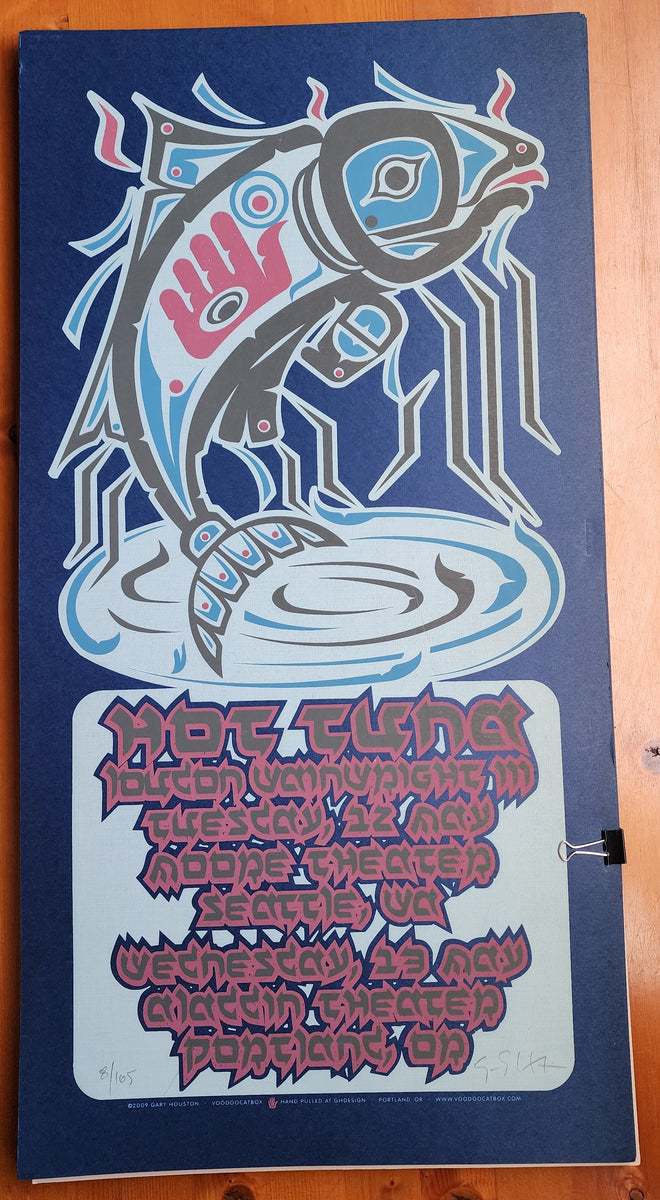 HOT TUNA
LOUDON WAINWRIGHT III
TUESDAY, 12 MAY
MOORE THEATER
SEATTLE, WA
WEDNESDAY, 13 MAY
ALADDIN THEATER
PORTLAND, OR
8/165
©2009 GARY HOUSTON · VOODOOCATBOX HAND PULLED AT GHDESIGN · PORTLAND, OR · WWW.VOODOOCATBOX.COM